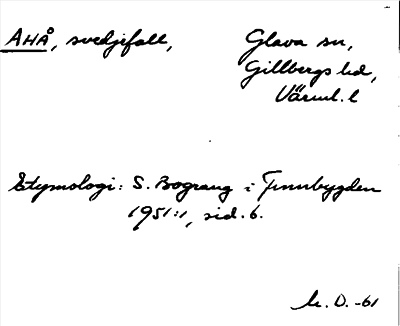 AHÅ, svedjefall, Glava sn,
Gillbergs hd,
Värml. l
Etymologi: S. Bograng i Finnbygden
1951:1, sid. 6.
-61